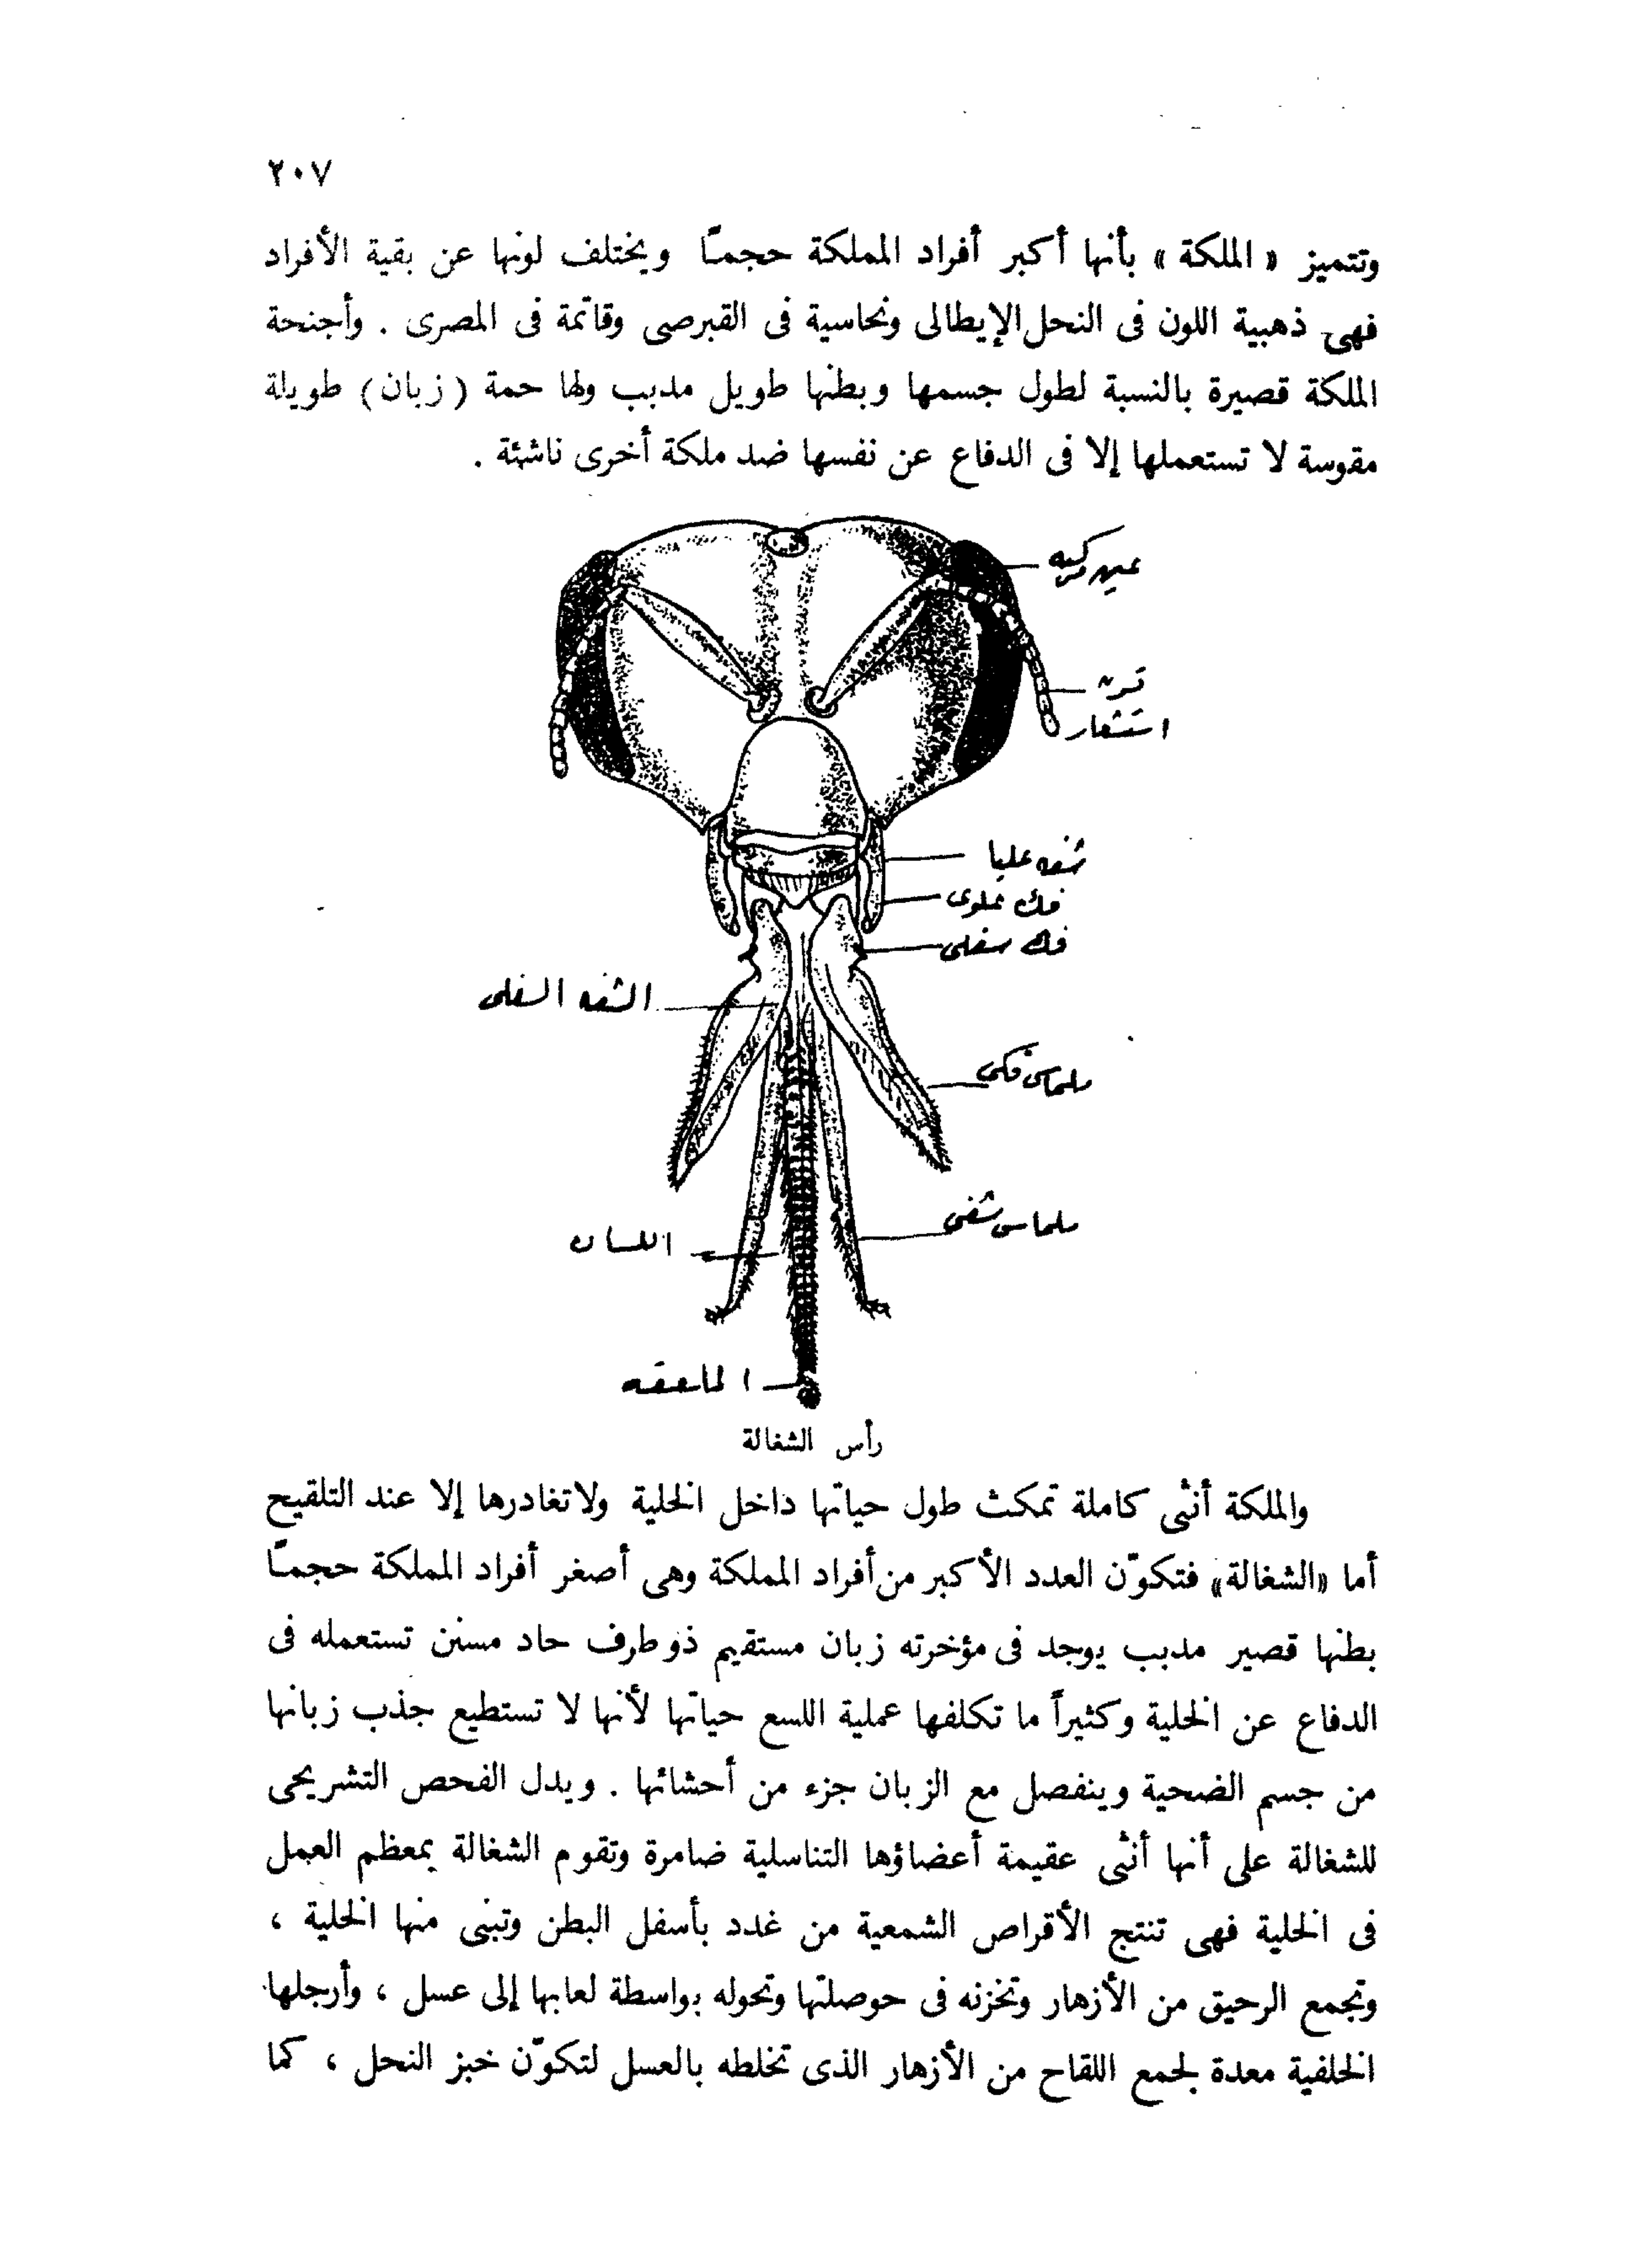 ٢٠٧
وتتميز « الملكة » بأنها أكبر أفراد المملكة حجمـًا ويختلف لونها عن بقية الأفراد
فهى ذهبية اللون فى النحل الإيطالى ونحاسية فى القبرصى وقاتمة فى المصرى . وأجنحة
الملكة قصيرة بالنسبة لطول جسمها وبطنها طويل مدبب ولها حمة ( زبان ) طويلة
مقوسة لا تستعملها إلا فى الدفاع عن نفسها ضد ملكة أخرى ناشئة .
عين مركبه
قرن
استشعار
شفه عليا
فك علوى
فك سفلى
الشفه السفلى
ملماس فكى
ملماس شفى
اللسان
الملعقه
رأس الشغالة
والملكة أنثى كاملة تمكث طول حياتها داخل الخلية ولا تغادرها إلا عند التلقيح
أما «الشغالة» فتكوّن العدد الأكبر من أفراد المملكة وهى أصغر أفراد المملكة حجمـًا
بطنها قصير مدبب يوجد فى مؤخرته زبان مستقيم ذو طرف حاد مسنن تستعمله فى
الدفاع عن الخلية وكثيراً ما تكلفها عملية اللسع حياتها لأنها لا تستطيع جذب زبانها
من جسم الضحية وينفصل مع الزبان جزء من أحشائها . ويدل الفحص التشريحى
للشغالة على أنها أنثى عقيمة أعضاؤها التناسلية ضامرة وتقوم الشغالة بمعظم العمل
فى الخلية فهى تنتج الأقراص الشمعية من غدد بأسفل البطن وتبنى منها الخلية ،
وتجمع الرحيق من الأزهار وتخزنه فى حوصلتها وتحوله بواسطة لعابها إلى عسل ، وأرجلها
الخلفية معدة لجمع اللقاح من الأزهار الذى تخلطه بالعسل لتكوّن خبز النحل ، كما